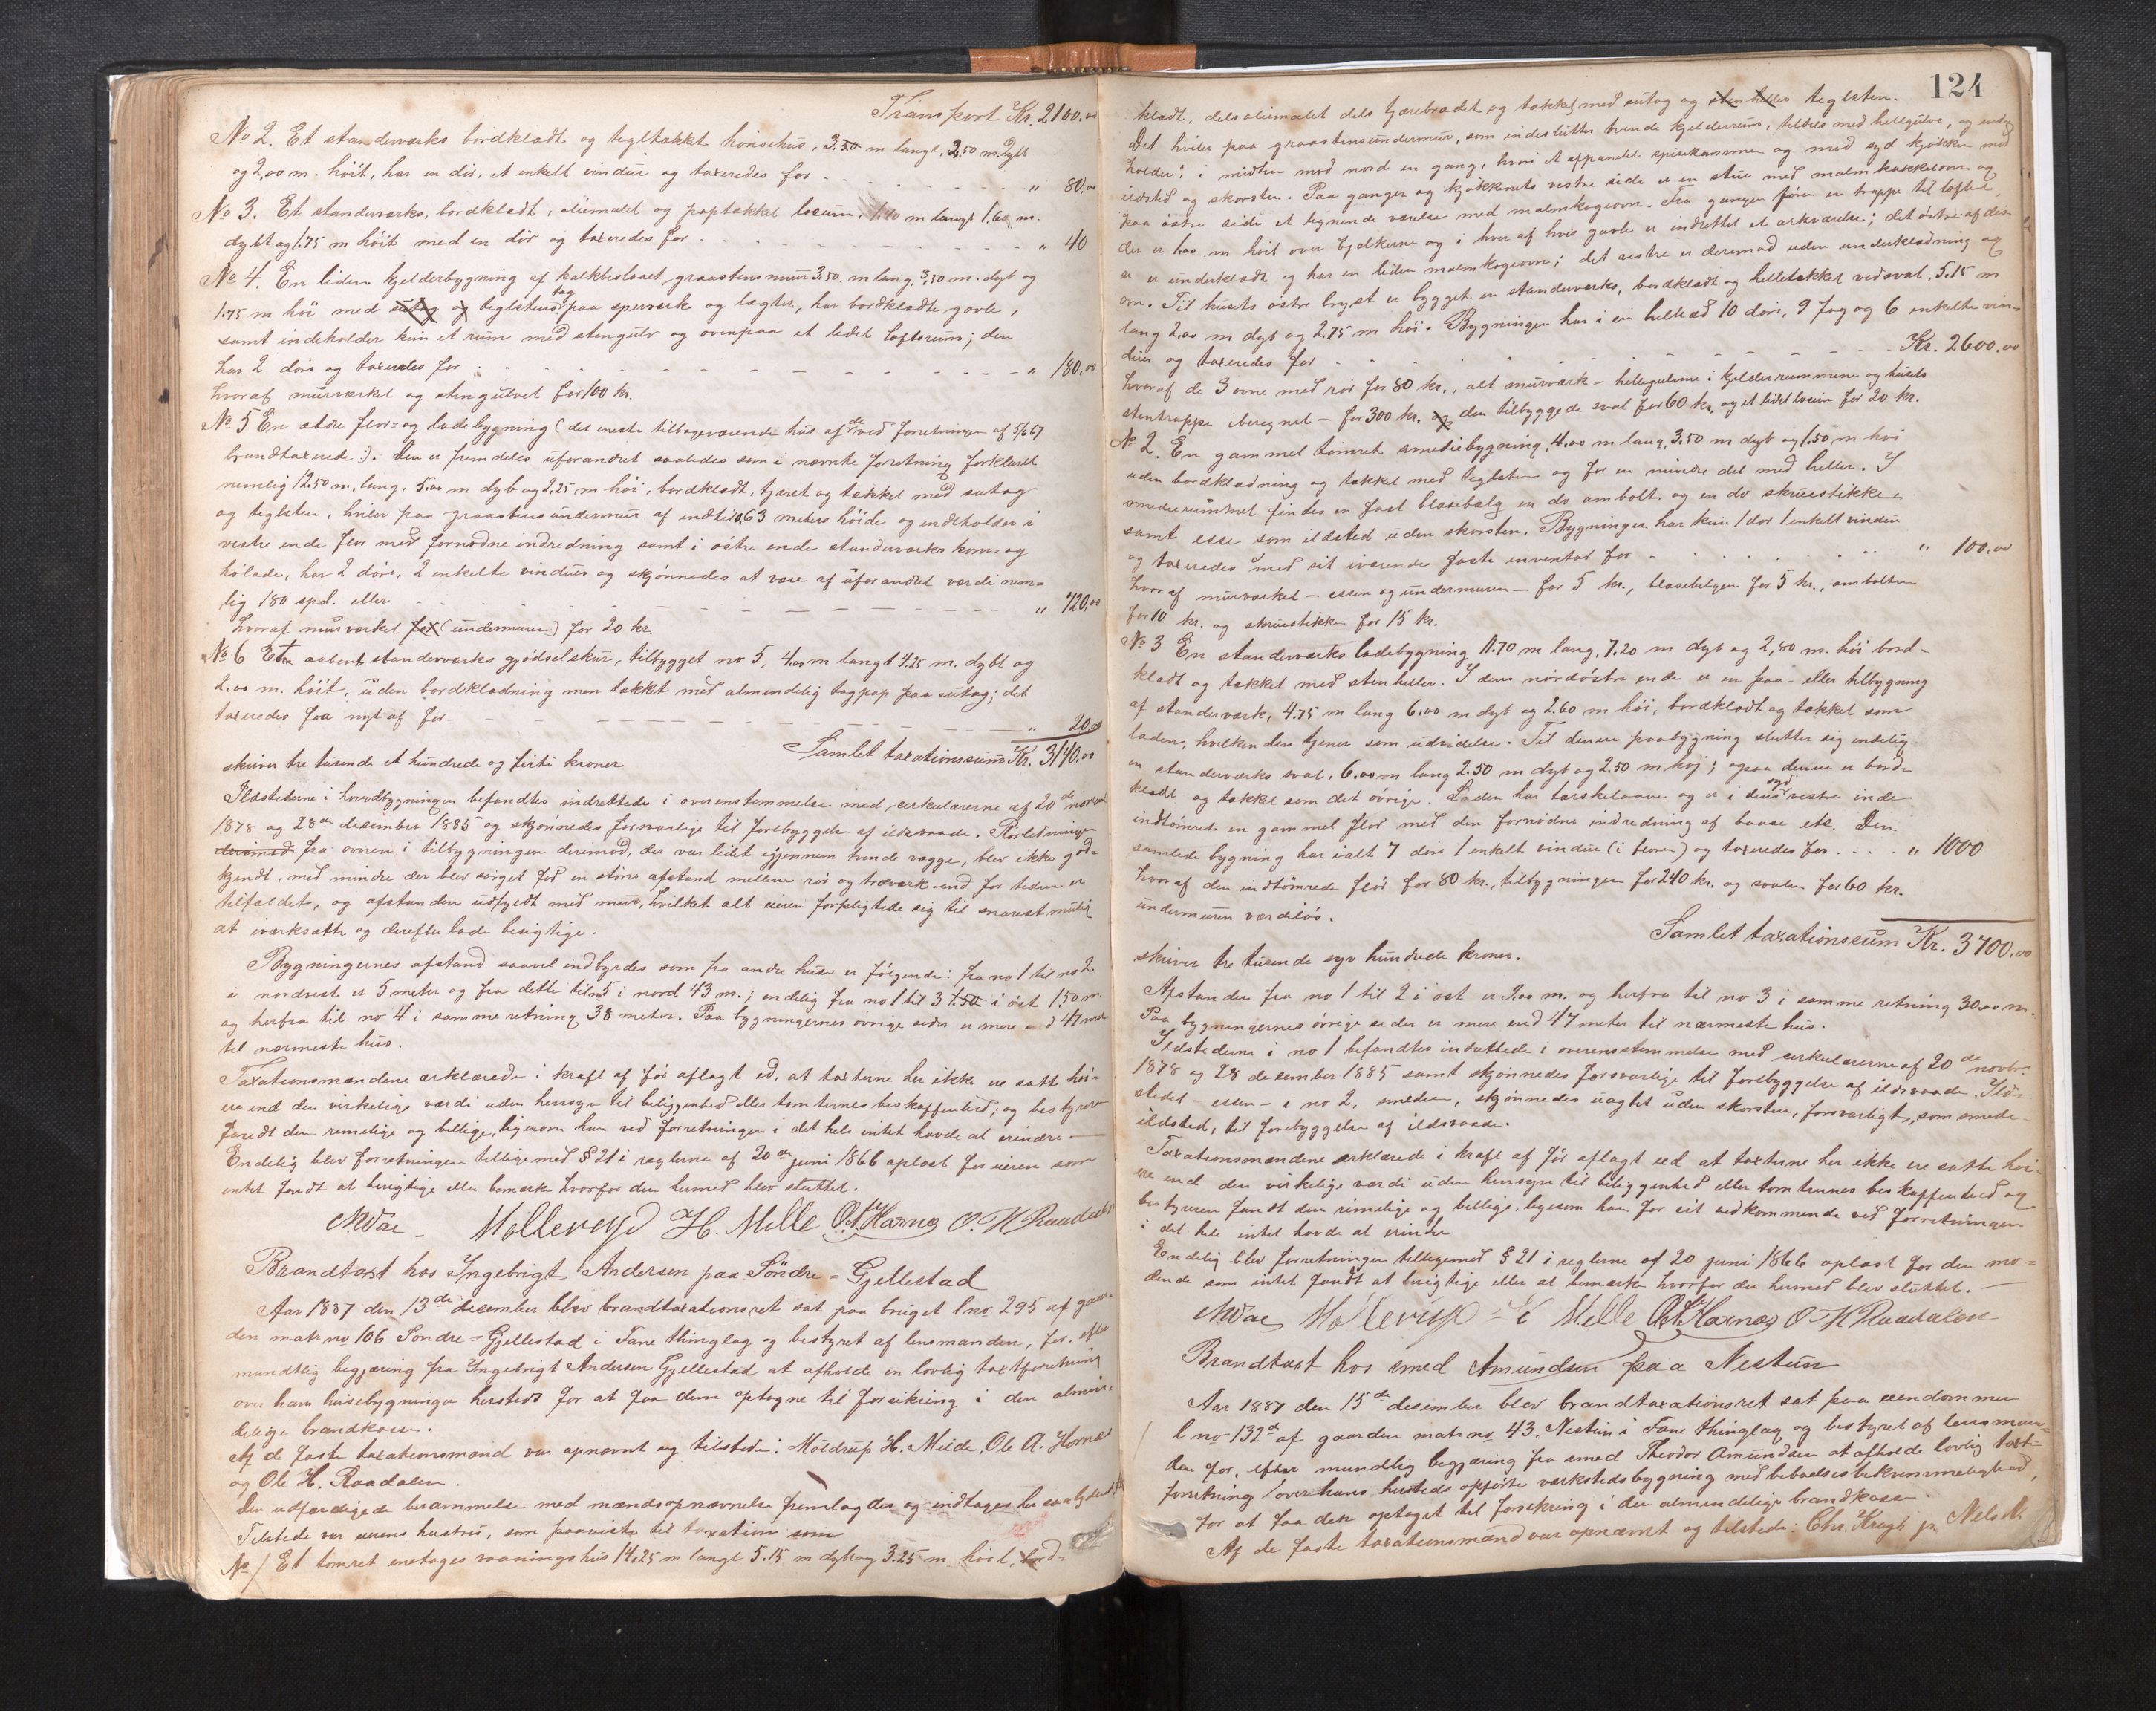 Transport Kr. 2100.00
No 2. Et standerværks bordklædt og tegltækket hönsehus, 3.30 m langt, 2.50 m. dybt
og 2,00 m. höit, har en dör, et enkelt vindue og taxeredes for " 80,00
No 3. Et standerværks, bordklædt, oliemalet og paptækket locum, 1.20 m langt 1.60 m.
dybt og 1.75 m höit med en dör og taxeredes for " 40
No 4. En liden kjelderbygning af kalkbeslaaet graastensmur 3.50 m lang, 3,50 m. dyb og
1.75 m höi med sutag og teglstens tag paa sperverk og lægter, har bordklædte gavle,
samt indeholder kun et rum med stengulv og ovenpaa et lidet loftsrum; den
har 2 döre og taxeredes for " 180,00
hvoraf murværket og stengulvet for 100 kr.
No 5 En större flor- og ladebygning (det eneste tilbageværende hus af de ved forretningen af 5/6 67
brandtaxerede). Den er fremdeles uforandret saaledes som i nævnte forretning forklaret
nemlig 12.50 m. lang, 5.00 m dyb og 2,25 m höi, bordklædt, tjæret og tækket med sutag
og teglsten, hviler paa graastensundermur af indtil 0.63 meters höide og indeholder i
vestre ende flor med fornödne indredning samt i östre ende standerværks korn- og
hölade, har 2 döre, 2 enkelte vinduer og skjönnedes at være af uforandret værdi nem-
lig 180 spd. eller " 720,00
hvoraf murverket for (undermuren) for 20 kr.
No 6 Et aabent standerværks gjödselskur, tilbygget no 5, 4.00 m langt 4.25 m. dybt og
2.00 m. höit, uden bordklædning men tækket med almindelig tagpap paa sutag; det
taxeredes fra nyt af for " 20,00
Samlet taxationssum Kr. 3140.00
skriver tre tusende et hundrede og förti kroner
Ildstederne i hovedbygningen befandtes indrettede i overensstemmelse med cirkulærerne af 20de novbr
1878 og 28de desember 1885 og skjönnedes forsvarlige til forebyggelse af ildsvaade. Rörledningen
derimod fra ovnen i tilbygningen derimod, der var ledet igjennem tvende vægge, blev ikke god-
kjendt, med mindre der blev sörget for en större afstand mellem rör og træverk end for tiden er
tilfældet, og afstanden udfyldt med mur, hvilket alt eieren forpligtede sig til snarest mulig
at iværksætte og derefter lade besigtige.
Bygningernes afstand saavel indbyrdes som fra andre huse er fölgende: fra no 1 til no 2
i nordvest er 5 meter og fra dette til no 5 i nord 43 m.; endelig fra no 1 til 3 1.50 i öst 1,50 m.
og herfra til no 4 i samme retning 38 meter. Paa bygningernes övrige sider er mere end 47 meter
til nærmeste hus.
Taxationsmændene erklærede i kraft af för aflagt ed, at taxterne her ikke ere satte höi-
ere end den virkelige værdi uden hensyn til beliggenhed eller tomternes beskaffenhed; og bestyreren
fandt den rimelige og billige, ligesom han ved forretningen i det hele intet havde at erindre.
Endelig blev forretningen tilligemed § 21 i reglerne af 20de juni 1866 oplæst for eieren som
intet fandt at berigtige eller bemærke hvorfor den hermed blev sluttet.
H. Milde O. A. Hornes O. H. Raadalen
Brandtaxt hos Ingebrigt Andersen paa Söndre-Gjellestad
Aar 1887 den 13de desember blev brandtaxationsret sat paa bruget lno. 295 af gaar-
den matr no 106 Söndre-Gjellestad i Fane thinglag og bestyret af lensmanden, for, efter
mundtlig begjæring fra Ingebrigt Andersen Gjellestad at afholde en lovlig taxtforretning
over hans husebygninger hersteds for at faa dem optagne til forsikring i den almin-
delige brandkasse.
Af de faste taxationsmænd var opnævnt og tilstede: Möldrup H. Milde, Ole A. Hornes
og Ole H. Raadalen.
Den udfærdigede berammelse med mændsopnævnelse fremlagdes og indtages her saalydende
Tilstede var eierens hustru, som paaviste til taxation som
No 1 Et tömret enetages vaaningshus 14.25 m langt 5.15 m dybt og 3.25 m höit, bord-
124
klædt, dels oliemalet dels tjærebrædet og tækket med sutag og stenheller teglsten.
Det hviler paa graastensundermur, som indeslutter tvende kjelderrum, tildels med hellegulve, og inde-
holder: i midten mod nord en gang, hvori et afpanelet spisekammer og mod syd kjökken med
ildsted og skorsten. Paa gangen og kjökkenets vestre side er en stue med malmkakkelovn og
paa östre side et lignende værelse med malmkogeovn. Fra gangen förer en trappe til loftet
der er 1.00 m höit over bjelkerne og i hver af hvis gavle er indrettet et arkværelse; det östre af dis-
se er underklædt og har en liden malmkogeovn; det vestre er derimod uden underklædning og
ovn. Til husets östre bryst er bygget en standerværks, bordklædt og helletækket vedsval, 5.15 m
lang 2,00 m dyb og 2.75 m höi. Bygningen har i sin helhed 10 döre, 9 fag og 6 enkelte vin-
duer og taxeredes for Kr. 2600.00
hvoraf de 3 ovne med rör for 80 kr., alt murværk – hellegulvene i kjelderrummene og husets
stentrappe iberegnet – for 300 kr. og den tilbyggede sval for 60 kr. og et lidet locum for 20 kr.
No 2. En gammel tömret smediebygning, 4.00 m lang, 3,50 m dyb og 1.50 m höi
uden bordklædning og tækket med teglsten og for en mindre del med heller. I
smedierummet findes en fast blæsebælg en do ambolt og en do skruestikke
samt esse som ildsted uden skorsten. Bygningen har kun 1 dör 1 enkelt vindue
og taxeredes med sit iværende faste inventar for " 100,00
hvoraf murværket – essen og undermuren – for 5 kr., blæsebelgen for 5 kr., ambolten
for 10 kr. og skruestikken for 15 kr.
No 3 En standerværks ladebygning 11.70 m lang, 7.20 m dyb og 2,80 m. höi bord-
klædt og tækket med stenheller. I dens nordöstre ende er en paa- eller tilbygning
af standerværk, 4.75 m lang 6.00 m dyb og 2.60 m höi, bordklædt og tækket som
laden, hvilken den tjener som udvidelse. Til denne paabygning slutter sig endelig
en standerværks sval, 6.00 m lang 2.50 m dyb og 2.50 m höj; ogsaa denne er bord-
klædt og tækket som det övrige. Laden har tærskelaave og er i dens syd vestre ende
indtömret en gammel flor med den fornödne indredning af baase etc. Den
samlede bygning har ialt 7 döre 1 enkelt vindue (i floren) og taxeredes for " 1000
hvoraf den indtömrede flor for 80 kr., tilbygningen for 240 kr. og svalen for 60 kr.
undermuren værdilös.
Samlet taxationssum Kr. 3700,00
skriver tre tusende syv hundrede kroner.
Afstanden fra no 1 til 2 i öst er 9.00 m. og herfra til no 3 i samme retning 30.00 m.
Paa bygningernes övrige sider er mere end 47 meter til nærmeste hus.
Ildstederne i no 1 befandtes indrettede i overensstemmelse med cirkulærerne af 20de novbr.
1878 og 28 desember 1885 samt skjönnedes forsvarlige til forebyggelse af ildsvaade. Ild-
stedet – essen – i no 2, smedien, skjönnedes uagtet uden skorsten, forsvarligt, som smede-
ildsted, til forebyggelse af ildsvaade.
Taxationsmændene erklærede i kraft af för aflagt eed at taxterne her ikke ere satte höi-
ere end den virkelige værdi uden hensyn til beliggenhed eller tomternes beskaffenhed og
bestyreren fandt den rimelige og billige, ligesom han for sit vedkommende ved forretningen
i det hele intet havde at erindre
Endelig blev forretningen tilligemed § 21 i reglerne af 20 juni 1866 oplæst for den mö-
dende som intet fandt at berigtige eller at bemærke hvorfor den hermed blev sluttet. –
Milde O. A. Hornes O H Raadalen
Brandtaxt hos smed Amundsen paa Nestun
Aar 1887 den 15de desember blev brandtaxationsret sat paa eiendommen
l no 132d af gaarden matr no 43, Nestun i Fane thinglag og bestyret af lensman-
den for, efter mundtlig begjæring fra smed Theodor Amundsen at afholde lovlig taxt-
forretning over hans hersteds opförte værkstedsbygning med beboelsesbekvemmelighed,
for at faa den optaget til forsikring i den almindelige brandkasse.
Af de faste taxationsmænd var opnævnt og tilstede: Chr. Kragh jr Nels M.